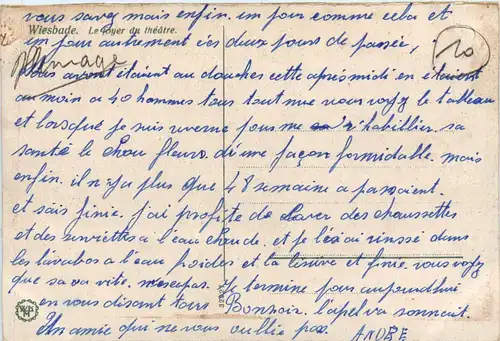 vous savez mais enfin. un jour comme celui et
Wiesbade. Le foyer du théâtre.
un jour autrement ces deux jours de passée,
10
nous avont étaient au douches cette après midi on étaient
au moin a 40 hommes tous tout nue vous voyez le tableau
et lorsque je suis pour me r'habillier. sa
santé le chou fleurs. d'une façon formidable. mais
enfin. il n'y a plus que 48 semaine a passaient.
et sais finie. j'ai profité de laver des chaussettes
et des serviettes a l'eau chaude. et je l'es ai rinssé dans
les lavabos a l'eau froides et la lésive et finie. vous voyez
que sa va vite. Je termine pour aujourd'hui
en vous disant tous Bonsoir. l'apel va sonnait.
Un amie qui ne vous oublie pas.
ANDRE